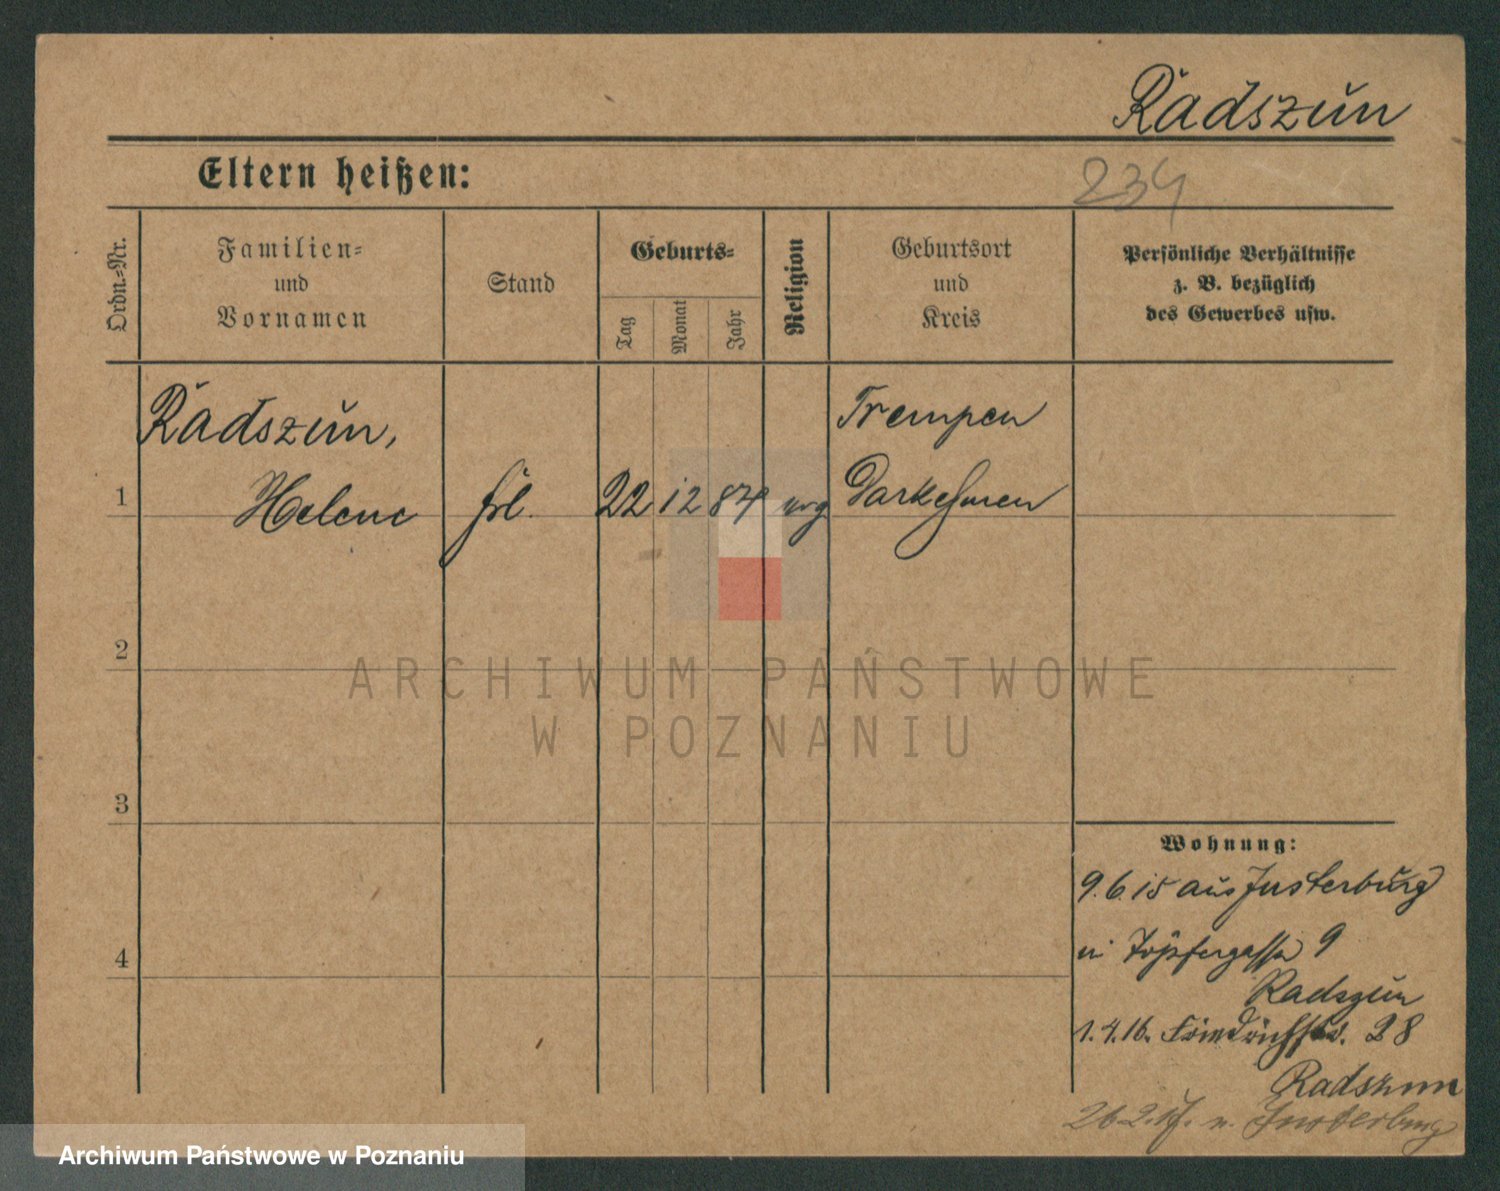 Radszun
Eltern heißen:
234
Ordn.=Nr.
Familien=
und
Vornamen
Stand
Geburts=
Tag
Monat
Jahr
Religion
Geburtsort
und
Kreis
Persönliche Verhältnisse
z. B. bezüglich
des Gewerbes usw.
1
Radszun,
Helene
Frl.
22
12
87
evg
Trempen
Darkehmen
2
ARCHIWUM PAŃSTWOWE
W POZNANIU
3
4
Wohnung:
9.6.15 aus Insterburg
in Töpfergasse 9
Radszun
1.4.16. Friedrichstr. 28
Radszun
26.2.17. n. Insterburg
Archiwum Państwowe w Poznaniu